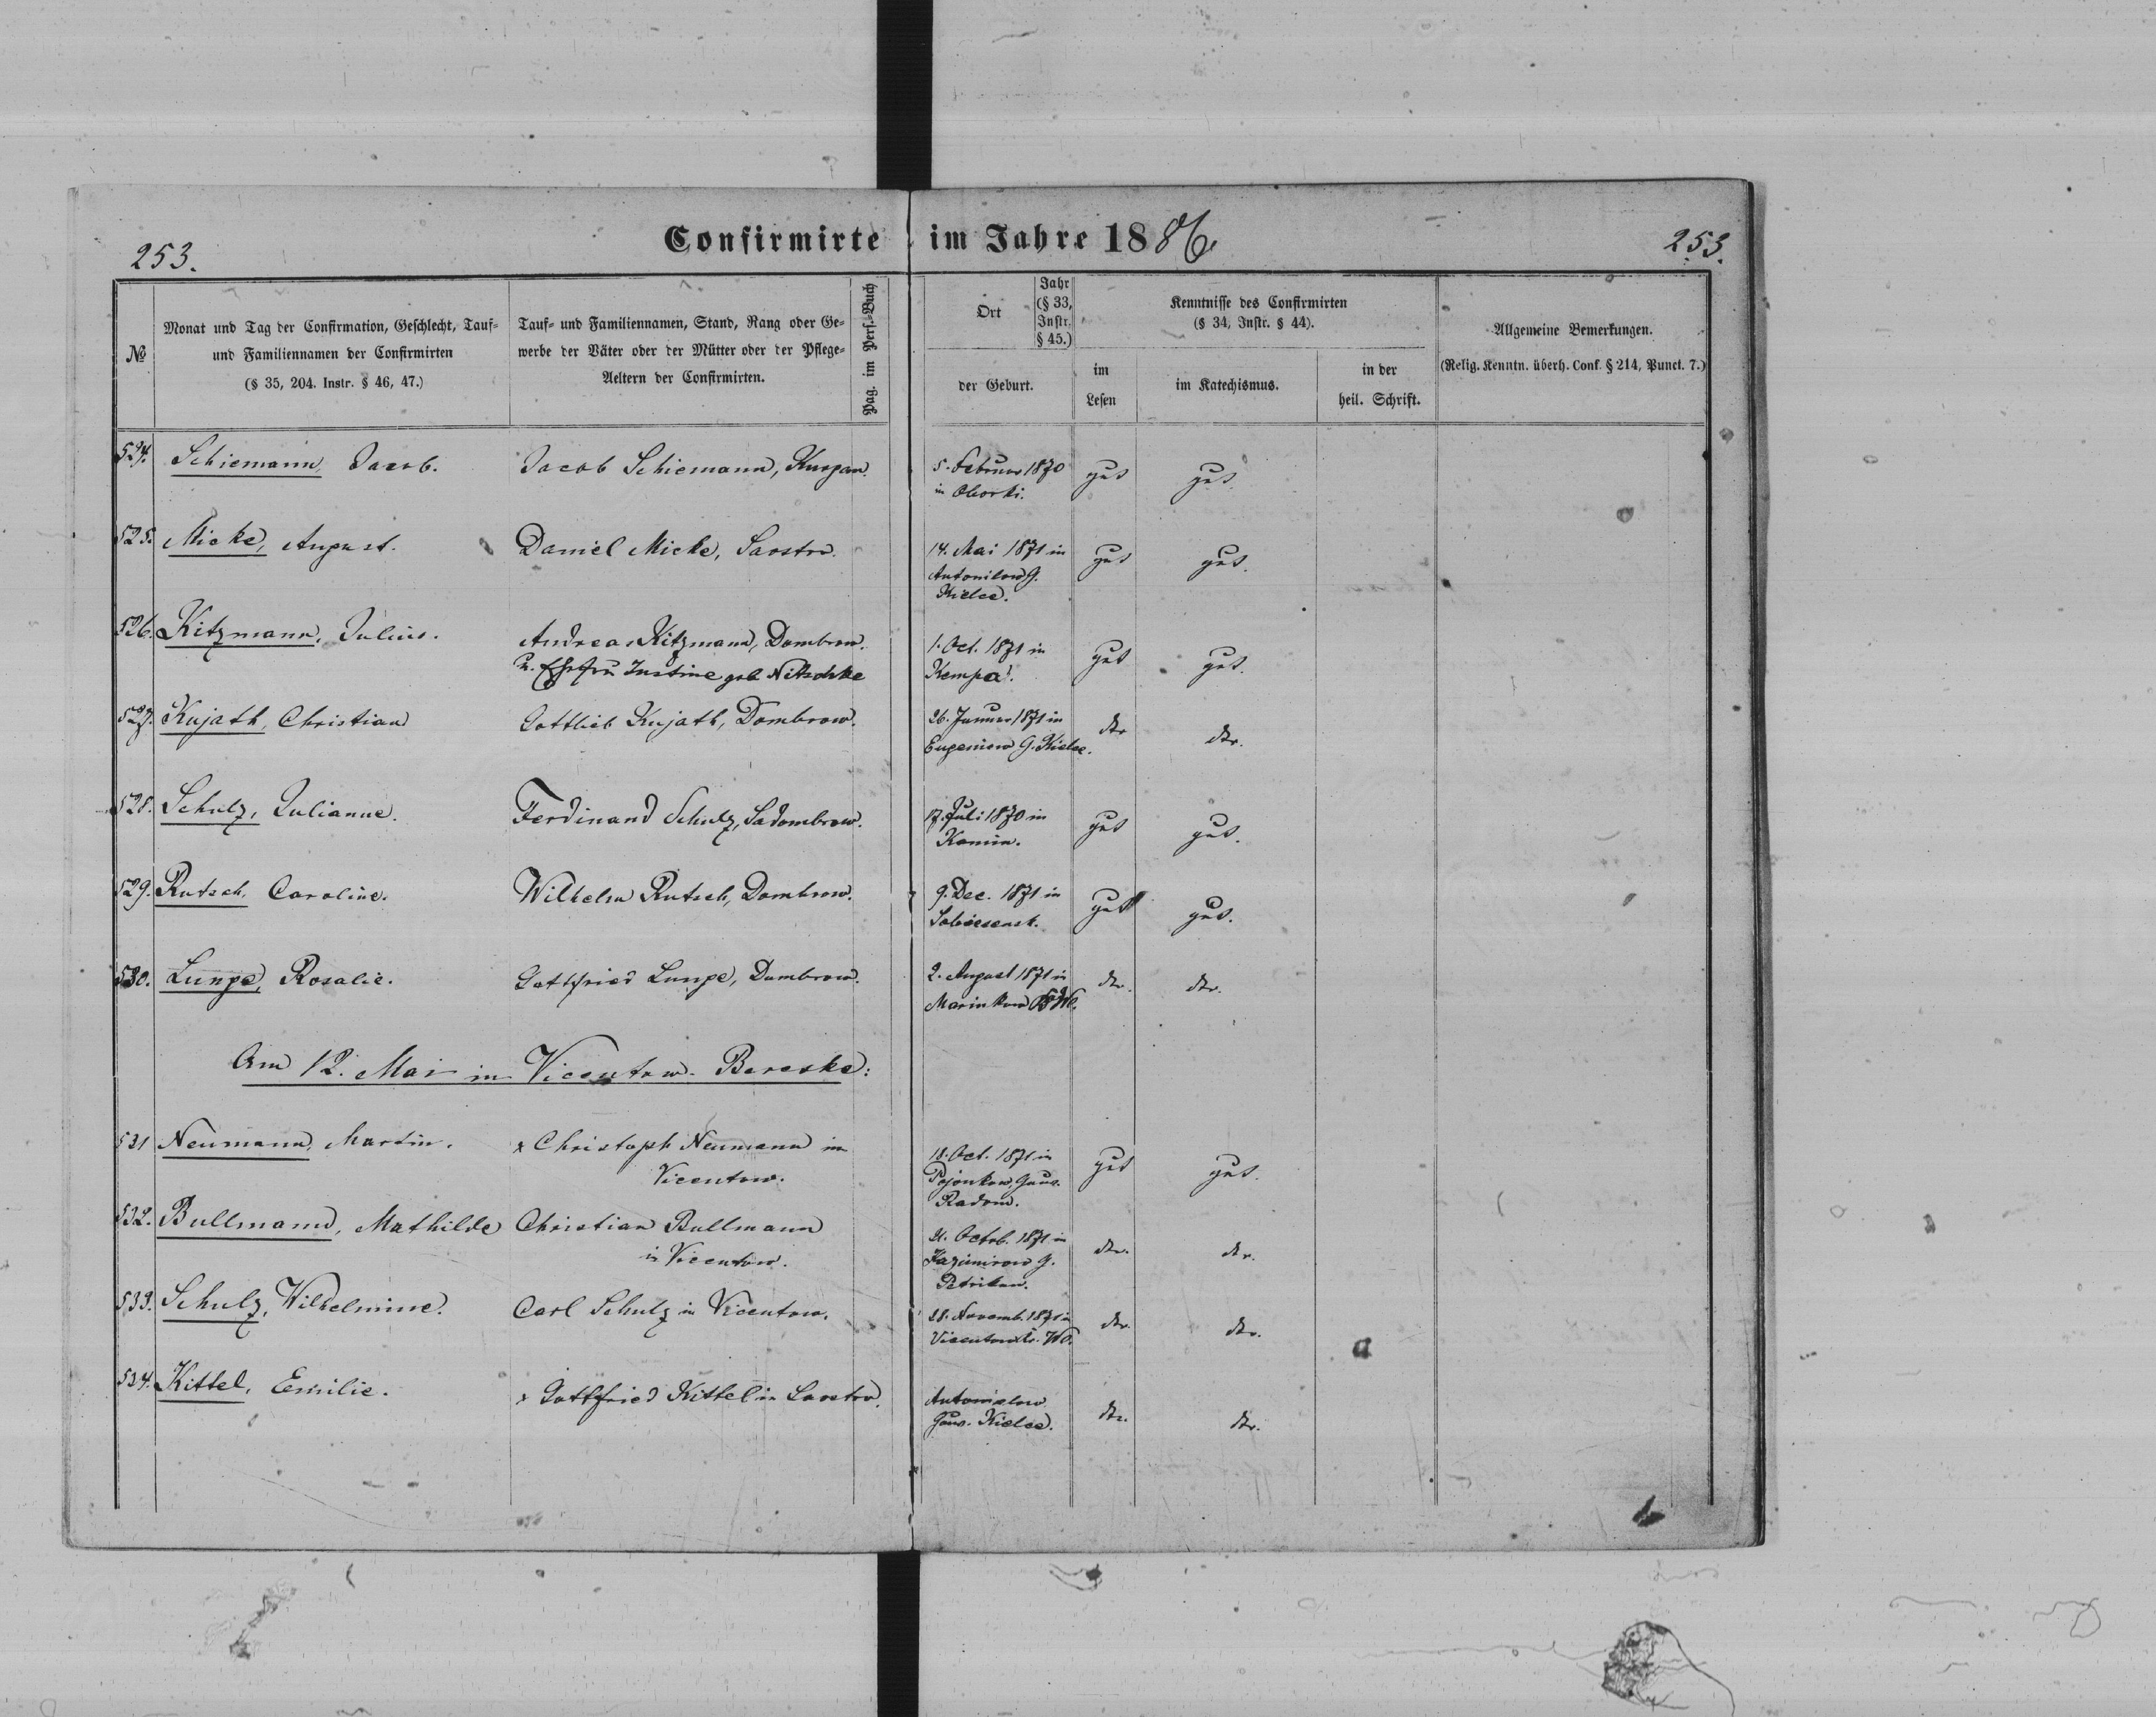 Confirmirte im Jahre 1886.
253.
253.
№
Monat und Tag der Confirmation, Geschlecht, Tauf=
und Familiennamen der Confirmirten
(§ 35, 204. Instr. § 46, 47.)
Tauf= und Familiennamen, Stand, Rang oder Ge=
werbe der Väter oder der Mütter oder der Pflege=
Aeltern der Confirmirten.
Pag. im Pers.=Buch
Ort
Jahr
(§ 33,
Instr.
§ 45.)
der Geburt.
Kenntnisse des Confirmirten
(§ 34, Instr. § 44).
im
Lesen
im Katechismus.
in der
heil. Schrift.
Allgemeine Bemerkungen.
(Relig. Kenntn. überh. Conf. § 214, Punct. 7.)
524. Schiemann, Jacob. Jacob Schiemann, Kurgan. 5. Februar 1870 gut gut.
in Oborki.
525. Mieke, August. Daniel Mieke, Saostro. 14. Mai 1871 in gut gut.
Antonilow G.
Kielce.
526. Kitzmann, Julius. Andreas Kitzmann, Dombrow. 1. Oct. 1871 in gut gut.
u. Ehefrau Justine geb Nitschke Kempa.
527. Kujath, Christian Gottlieb Kujath, Dombrow. 26. Januar 1871 in dto dto.
Eugeniow G. Kielce.
528. Schulz, Julianne. Ferdinand Schulz, Sadombrow. 17. Juli 1870 in gut gut.
Kamin.
529. Rutsch, Caroline. Wilhelm Rutsch, Dombrow. 9. Dec. 1871 in gut gut.
530. Lunge, Rosalie. Gottfried Lunge, Dombrow. 2. August 1871 in dto. dto.
Marinkow
Am 12. Mai in Vicentow-Bereske:
531 Neumann, Martin. x Christoph Neumann in 18. Oct. 1871 in gut gut.
Vicentow. Pojonkow, Gouv.
Radom.
532. Bullmann, Mathilde Christian Bullmann 21. Octob. 1871 in dto. dto.
in Vicentow. Kazimirow G.
Petrikau.
533. Schulz, Wilhelmine. Carl Schulz in Vicentow. 28. Novemb. 1871 in dto. dto.
Vicentow
534. Kittel, Emilie. x Gottfried Kittel in Saostro. Antonielow dto. dto.
Gouv. Kielce.